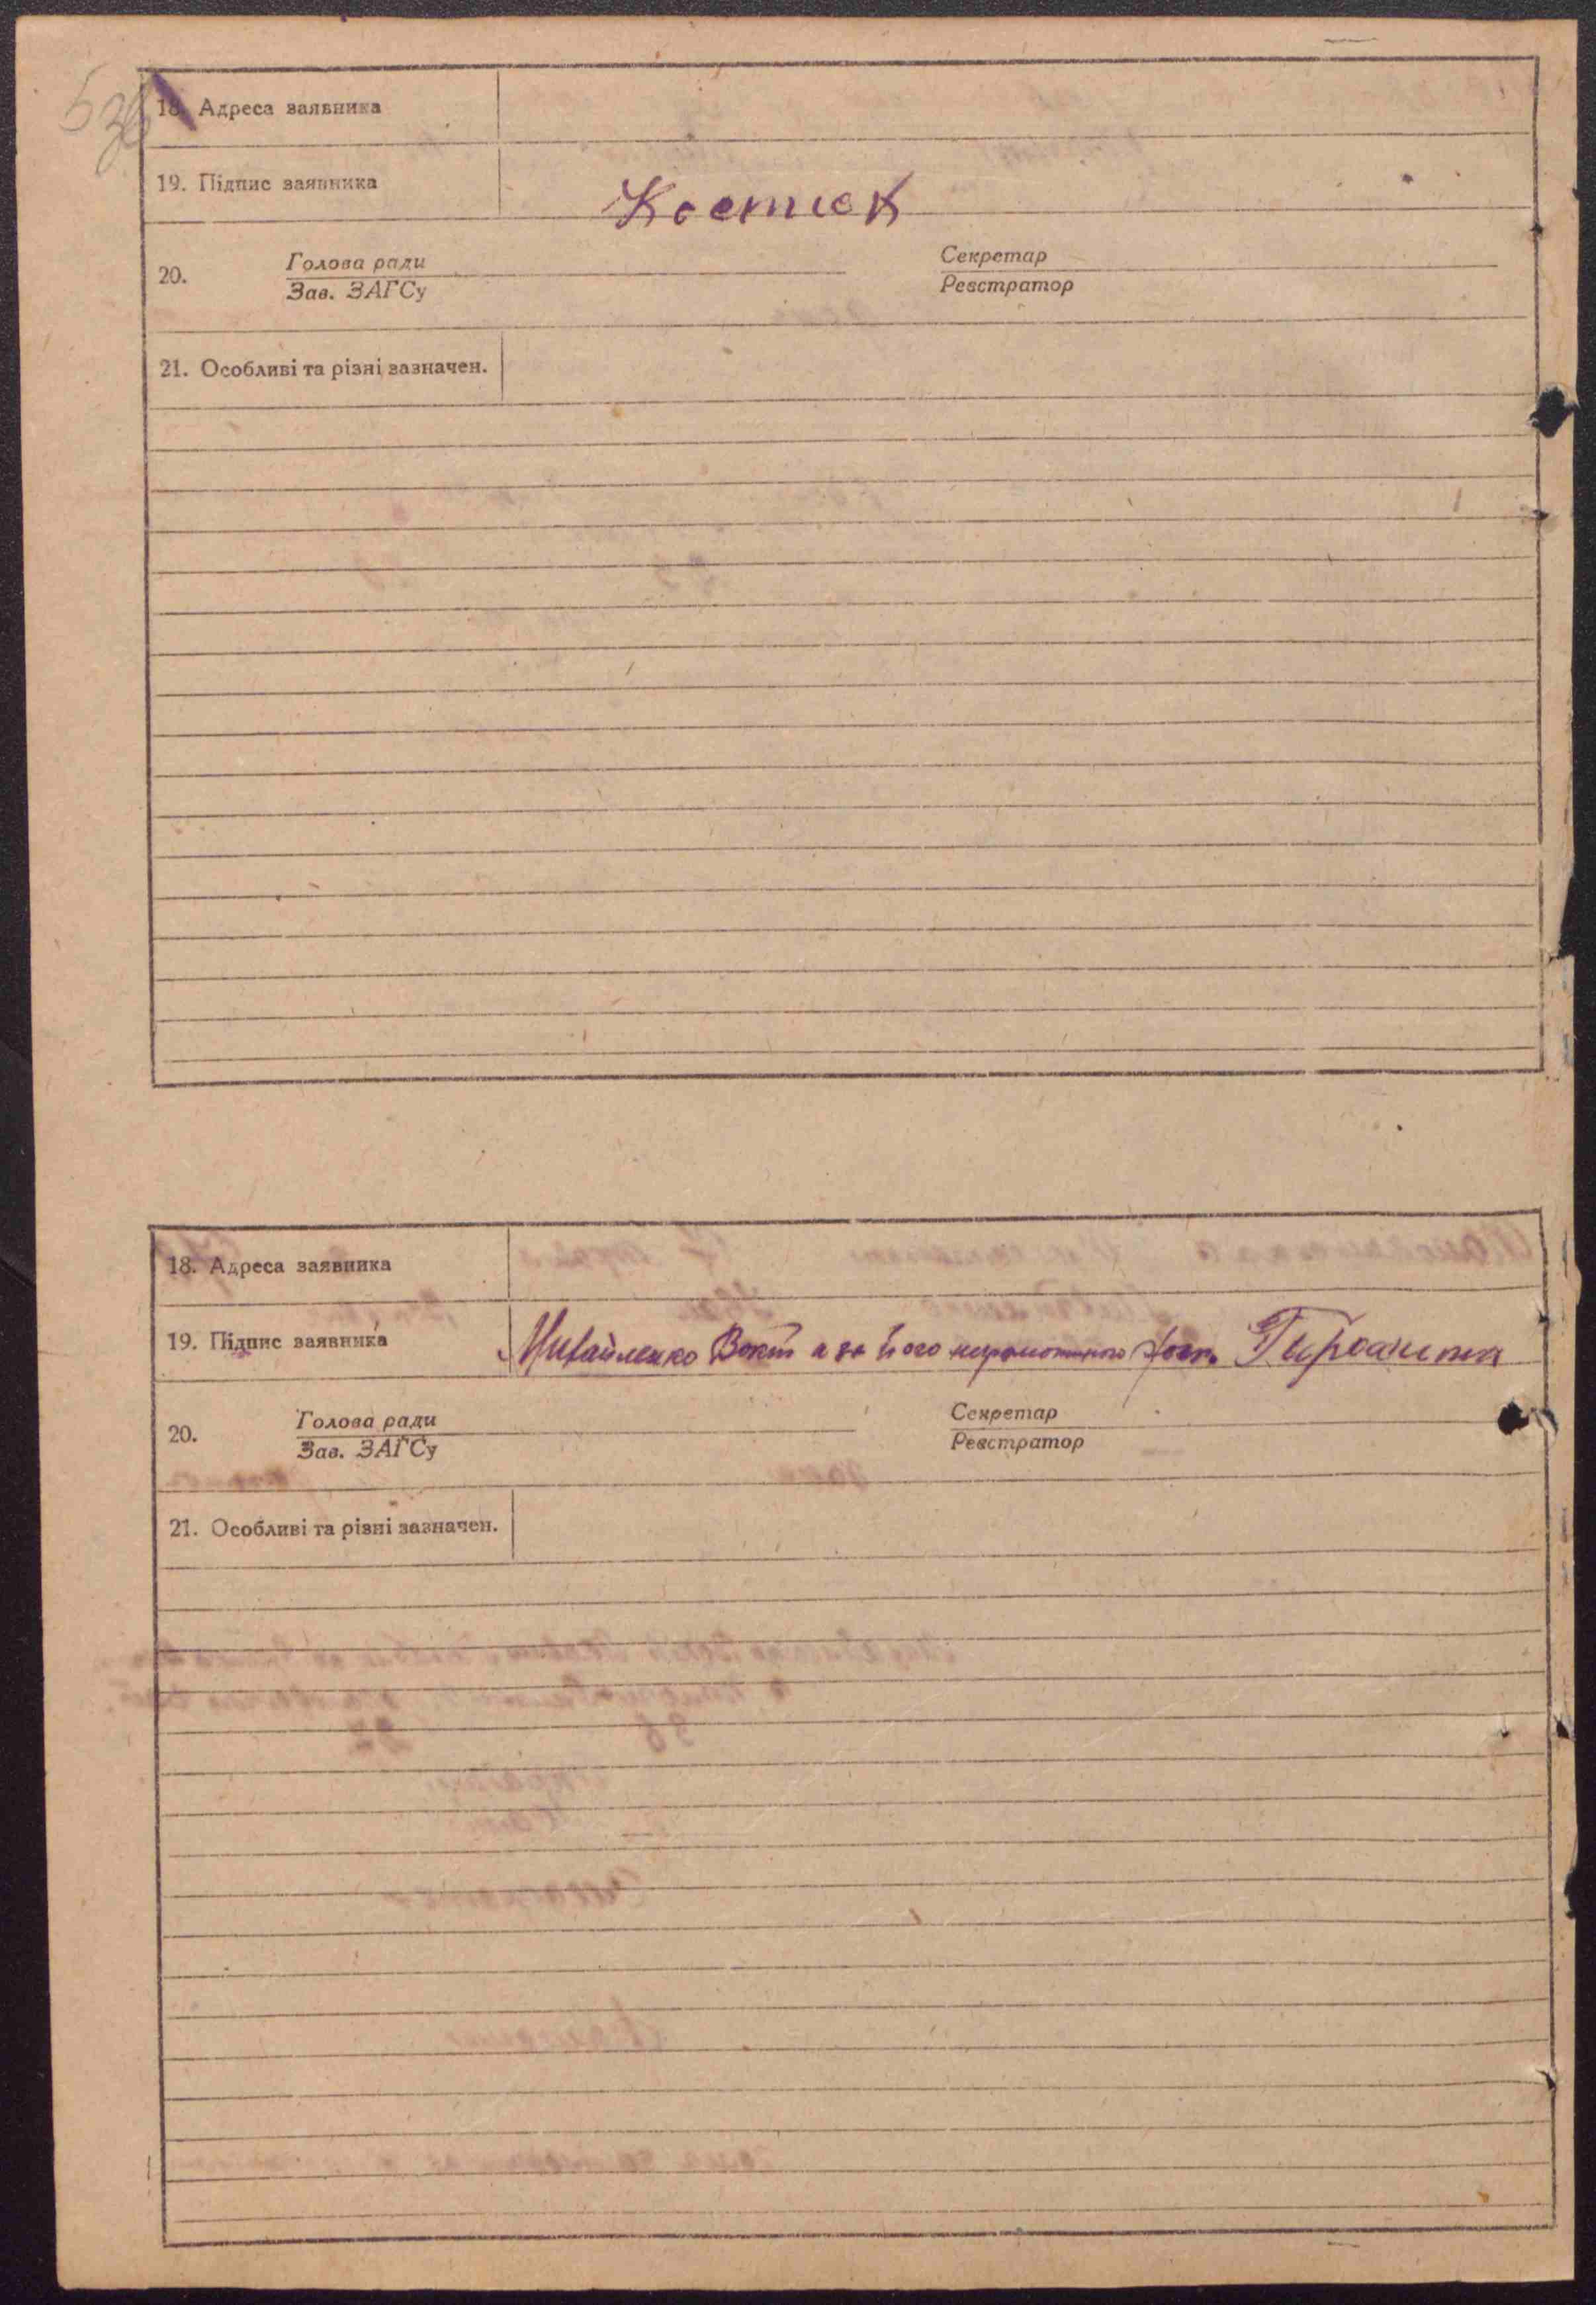 18. Адреса заявника
19. Підпис заявника Костюк
20. Голова ради Секретар
Зав. ЗАГСу Реєстратор
21. Особливі та різні зазначен.
18. Адреса заявника
19. Підпис заявника Михайленко а за його неграмотного
20. Голова ради Секретар
Зав. ЗАГСу Реєстратор
21. Особливі та різні зазначен.